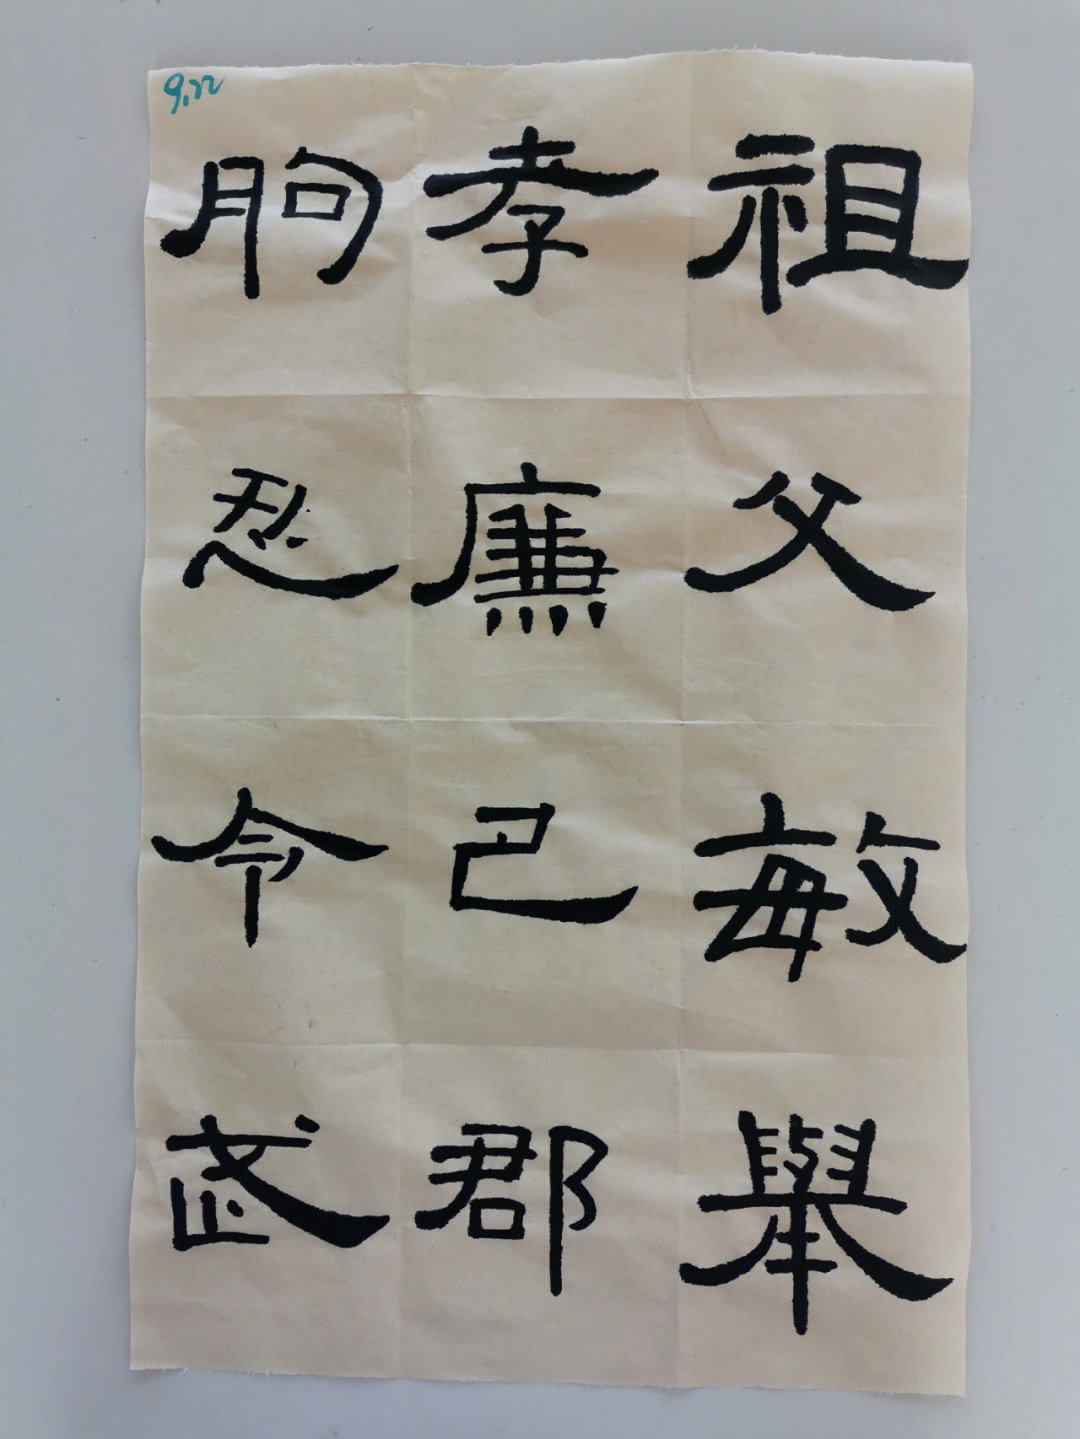 9.22
祖父敏舉
孝廉巴郡
朐忍令武